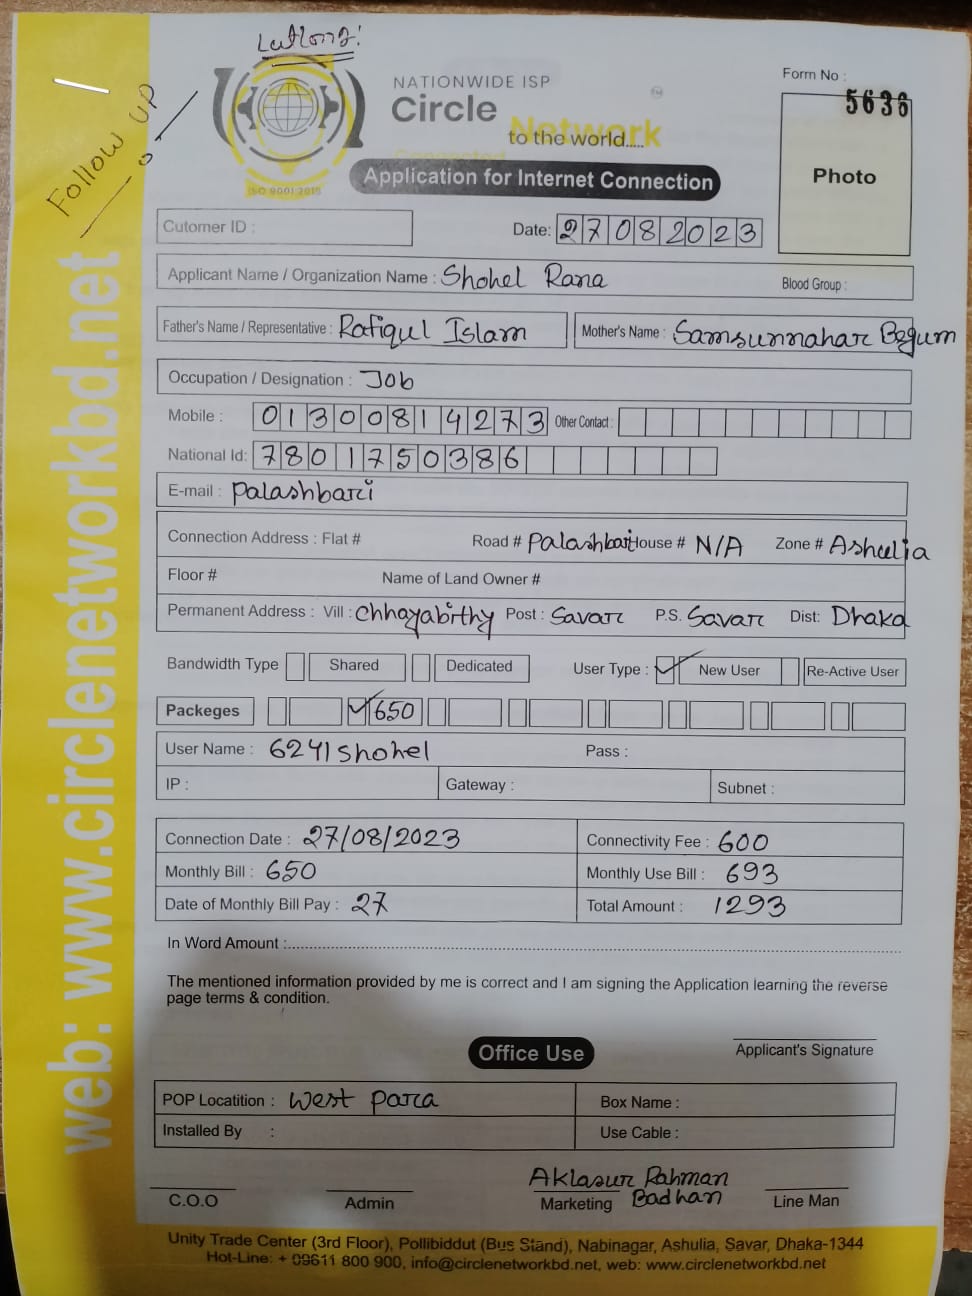 Follow UP
NATIONWIDE ISP
Circle
Network
to the world.....
ISO 9001:2015
Form No :
5636
Photo
Application for Internet Connection
Cutomer ID :
Date: 27082023
Applicant Name / Organization Name : Shohel Rana
Blood Group :
Father's Name / Representative : Rafiqul Islam
Mother's Name : Samsunnahar Begum
Occupation / Designation : Job
Mobile : 01300814273 Other Contact :
National Id: 7801750386
E-mail : Palashbari
Connection Address : Flat # Road # Palashbari House # N/A Zone # Ashulia
Floor # Name of Land Owner #
Permanent Address : Vill : Chhayabithy Post : Savar P.S. Savar Dist: Dhaka
Bandwidth Type Shared Dedicated User Type : New User Re-Active User
Packeges 650
User Name : 6241shohel Pass :
IP : Gateway : Subnet :
Connection Date : 27/08/2023 Connectivity Fee : 600
Monthly Bill : 650 Monthly Use Bill : 693
Date of Monthly Bill Pay : 27 Total Amount : 1293
In Word Amount :
The mentioned information provided by me is correct and I am signing the Application learning the reverse
page terms & condition.
Applicant's Signature
Office Use
POP Locatition : West Para Box Name :
Installed By : Use Cable :
Aklasur Rahman
Badhan
C.O.O Admin Marketing Line Man
Unity Trade Center (3rd Floor), Pollibiddut (Bus Stand), Nabinagar, Ashulia, Savar, Dhaka-1344
Hot-Line: + 09611 800 900, info@circlenetworkbd.net, web: www.circlenetworkbd.net
web: www.circlenetworkbd.net